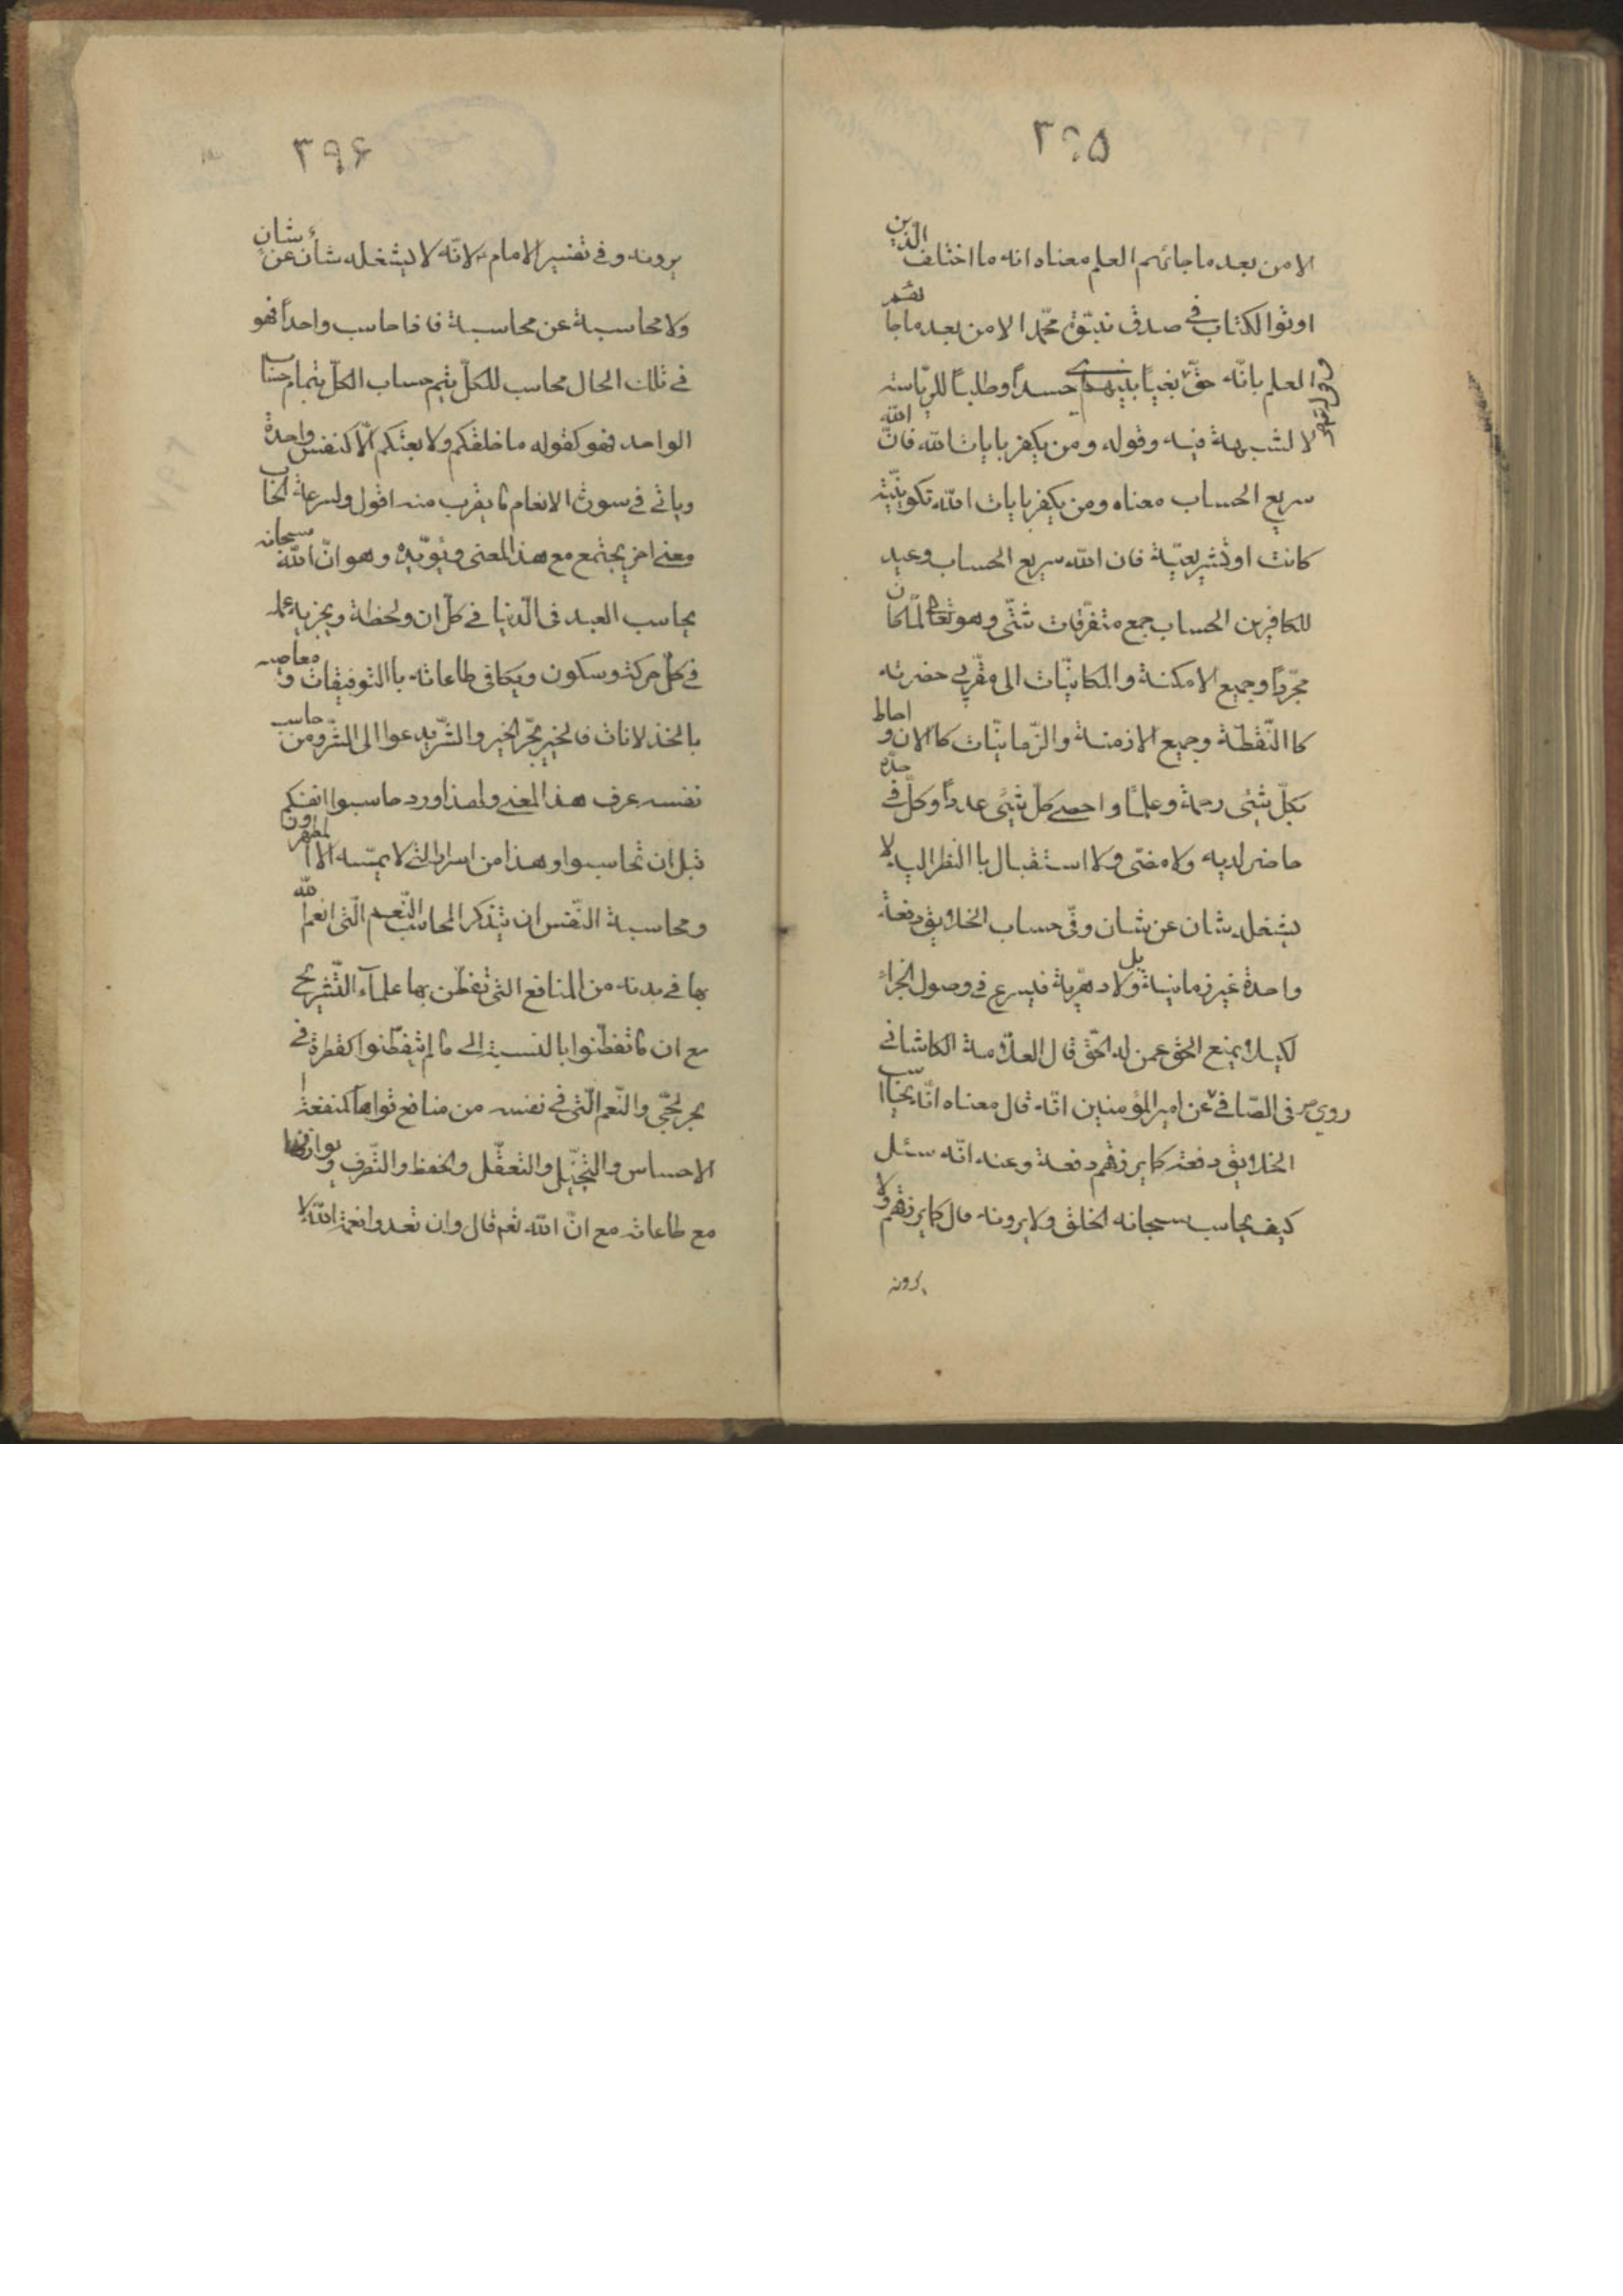 ٣٩٥
الا من بعد ما جائهم العلم معناه انه ما اختلف الذين
اوتوا الكتاب في صدق نبوّة محمّد الا من بعد ما جائهم
العلم بانّه حقّ بغيًا بينهم حسدًا وطلبًا للرّياسته
لا لشبهة فيه وقوله ومن يكفر بايات الله فانّ الله
سريع الحساب معناه ومن يكفر بايات الله تكوينيّة
كانت او تشريعيّة فان الله سريع الحساب وعيد
للكافرين الحساب جمع متفرّقات شتّى وهو تعالى لمّا كان
مجرّدًا وجميع الامكنة والمكانيّات الى مقرّبي حضرته
كاالنّقطة وجميع الازمنة والزّمانيّات كاالان و احاط
بكلّ شيئى رحمة وعلمًا واحصى كلّ شيئى عددًا وكلّ في حدّه
حاضر لديه ولا مضى ولا استقبال باالنظر اليه لا
يشغله شان عن شان وفى حساب الخلايق دفعة
واحدة غير زمانيّة بل ولا دهريّة فيسرع في وصول الجزاء
لكيلا يمنع الحق عمن له الحقّ قال العلّامة الكاشانى
في الصّافي عن امير المؤمنين انّه قال معناه انّه يحاسب
الخلايق دفعة كما يرزقهم دفعة وعنه انّه سئل
كيف يحاسب سبحانه الخلق ولا يرونه قال كما يرزقهم ولا
يرونه
٣٩۶
يرونه و في تفسير الامام لانّه لا يشغله شان عن شان
ولا محاسبة عن محاسبة فاذا حاسب واحدًا فهو
في تلك الحال محاسب للكلّ يتم حساب الكلّ بتمام حساب
الواحد فهو كقوله ما خلقكم ولا بعثكم الّا كنفس واحدة
وياتي في سورة الانعام ما يقرب منه اقول ولسرعة الحساب
معنى اخر يجتمع مع هذا المعنى ويؤيّده وهو انّ الله سبحانه
يحاسب العبد في الدّنيا في كلّ ان ولحظة ويجزيه عمله
في كلّ حركة وسكون ويكافى طاعاته باالتوفيقات و معاصيه
بالخذلانات فالخير يجّر الخير والشّر يدعوا الى الشّر ومن حاسب
نفسه عرف هذا المعنى ولهذا ورد حاسبوا انفسكم
قبل ان تحاسبوا وهذا من اسرار التي لا يمسّه الا المطهرون
ومحاسبة النّفس ان يتذكر المحاسب النّعم الّتى انعم الله
بها في بدنه من المنافع التى تفطّن بها علماء التّشريح
مع ان ما تفطّنوا بالنسبة الى ما لم يتفطّنوا كقطرة في
بحر لجّي والنّعم الّتى في نفسه من منافع قواها كمنفعة
الاحساس والتّخيّل والتعقّل والحفظ والتّصرف و يوازنها
مع طاعاته مع انّ الله تعم قال وان تعدوا نعمة الله لا